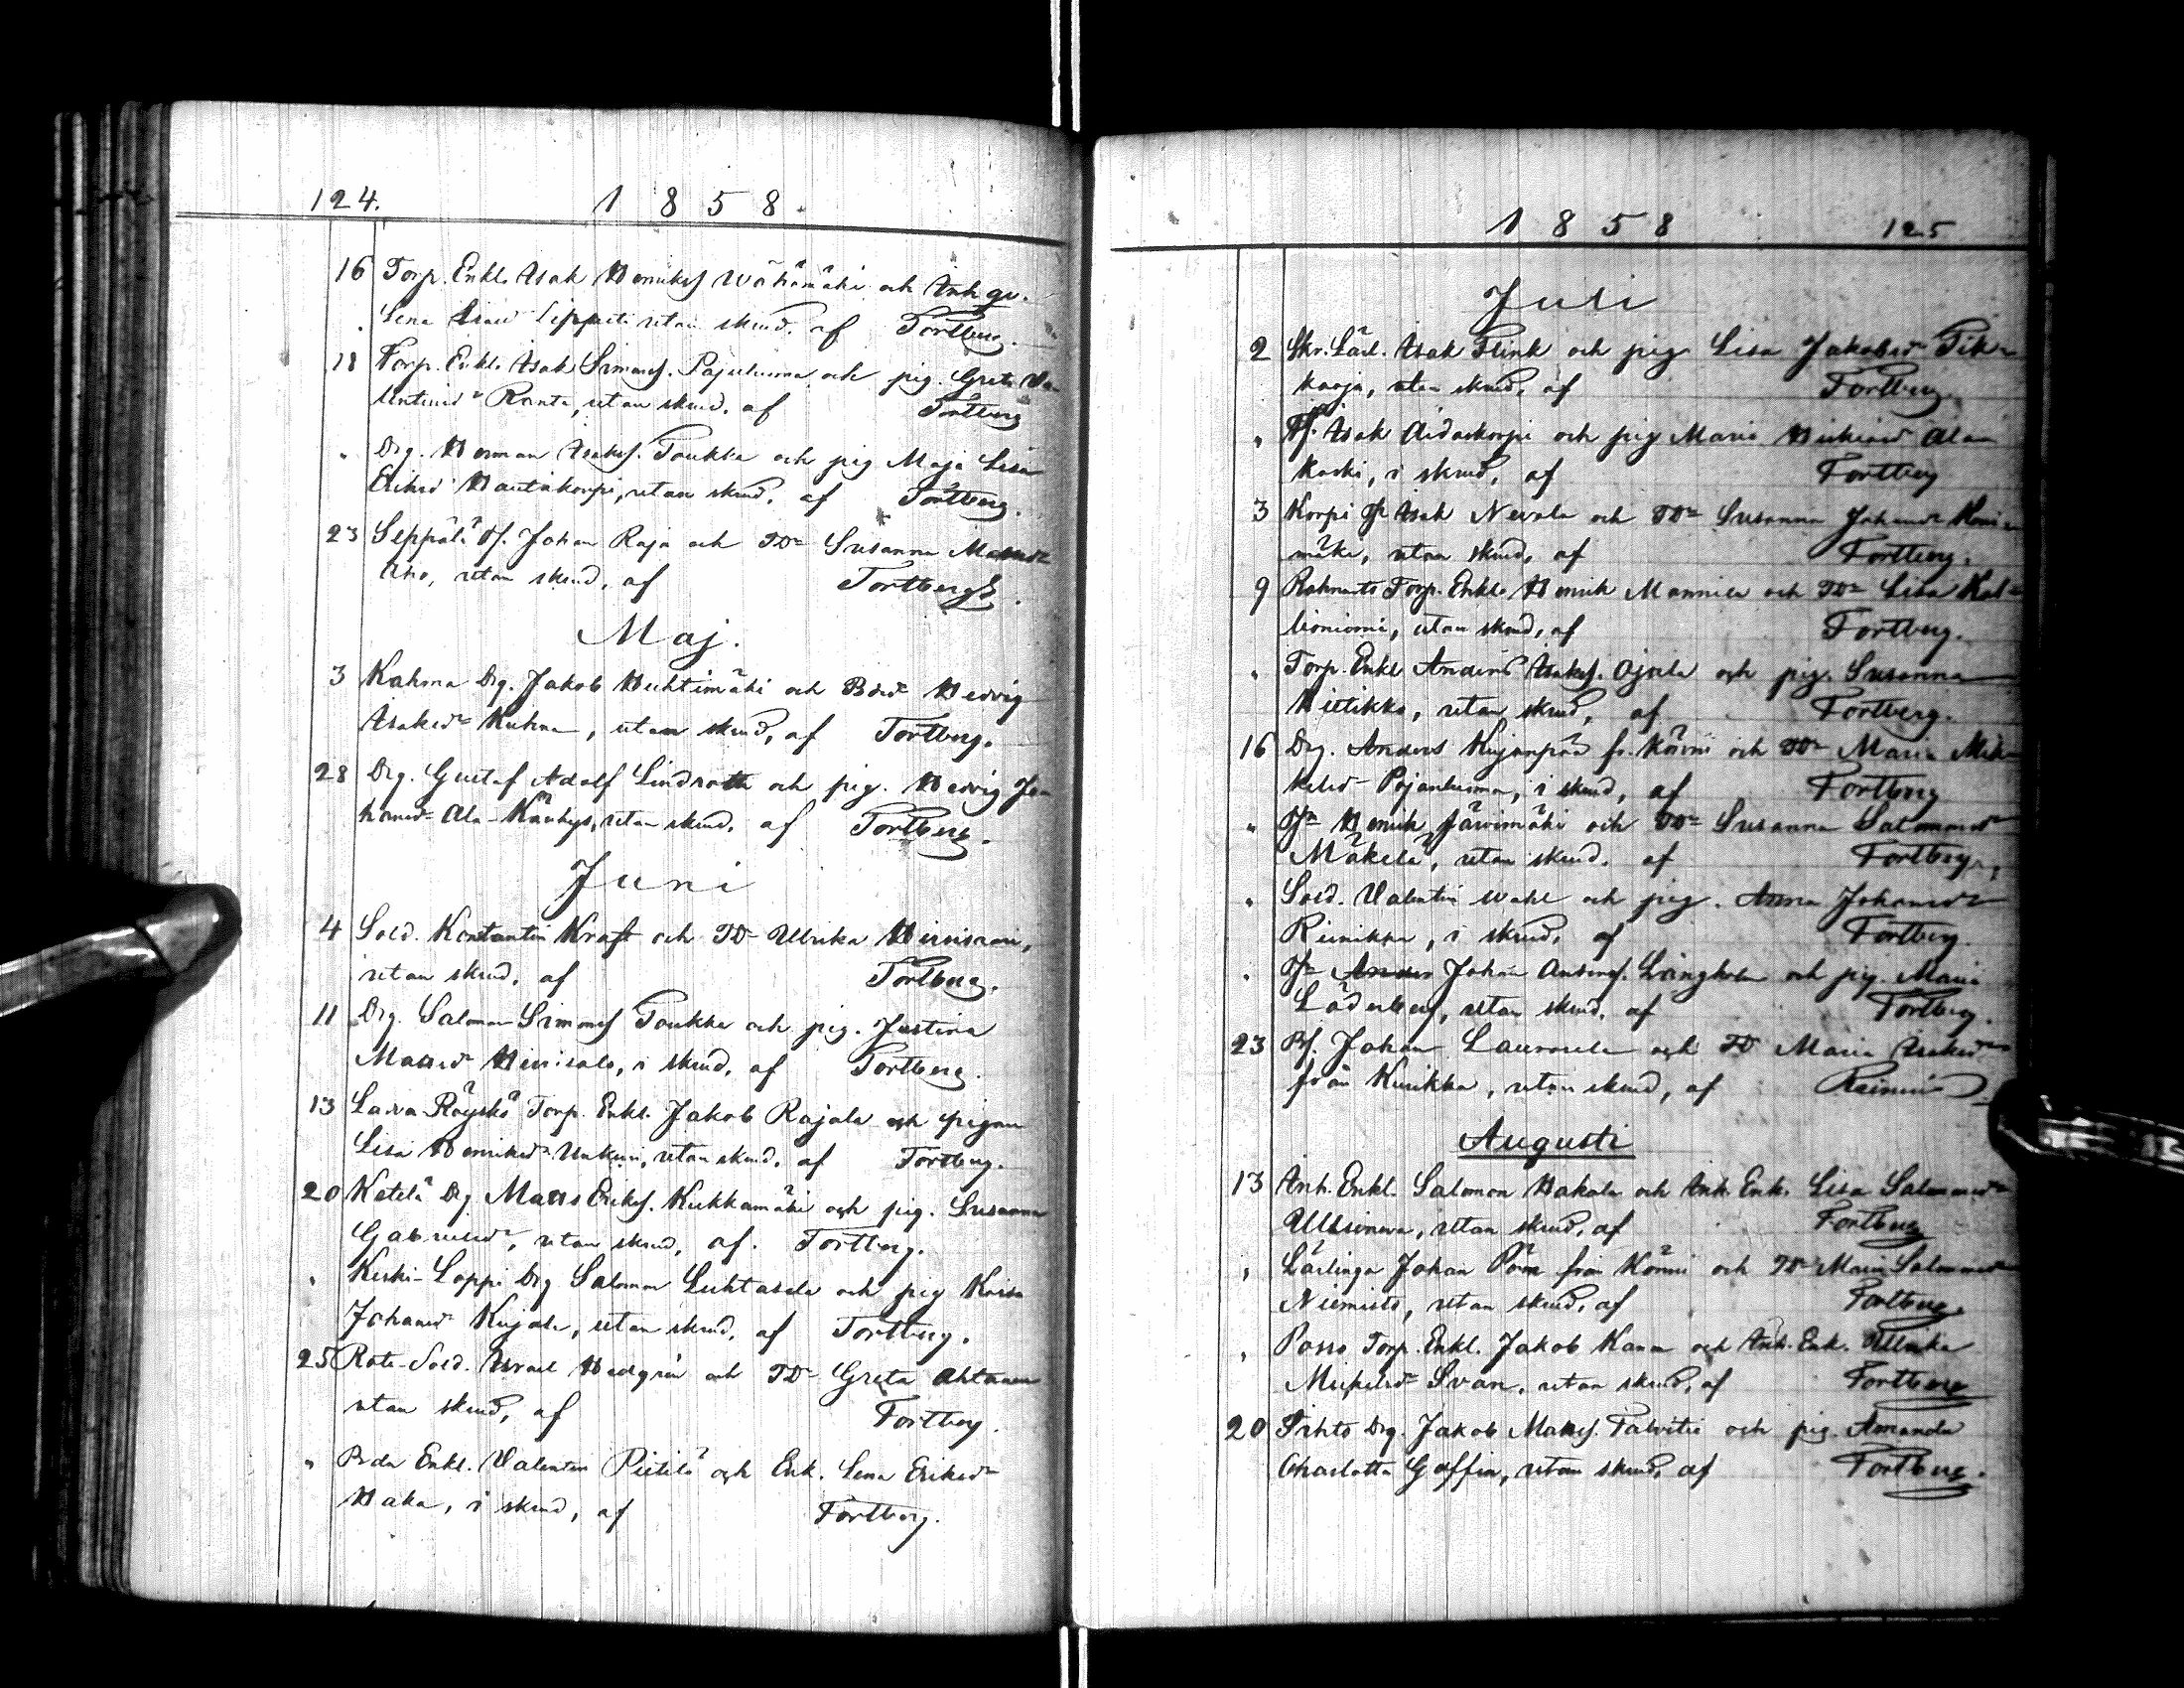 124. 1858.
16 Torp. Enkl. Isak Henriksf Wähämäki och Inh. qv.
Lena utan skrud. af Fortberg.
18 Torp. Enkl. Isak Simonsf. Pajuluoma och pig. Greta Va-
lentinsd.r Ranta, utan skrud. af Fortberg
" Drg. Herman Isaksf. Toukka och pig Maja Lisa
Eriksd.r Hautakorpi, utan skrud. af Fortberg.
23 Seppälä Tf. Johan Raja och TD.r Susanna Mattsd.r
Aho, utan skrud, af Fortberg.
Maj.
3 Kahma Drg. Jakob Huhtimäki och Hedvig
Isaksd.r Kuhna, utan skrud, af Fortberg.
28 Drg. Gustaf Adolf Lindroth och pig. Hedvig Jo-
hansd.r Ala-Kärhys, utan skrud. af Fortberg.
Juni
4 Sold. Konstantin Kraft och TD.r Ulrika
utan skrud, af Fortberg.
11 Drg. Salomon Simonsf Toukka och pig. Justina
Mattsd.r Hirsisalo, i skrud, af Fortberg.
13 Röyskö Torp. Enkl. Jakob Rajala och pigan
Lisa Henriksd.r Unkuri, utan skrud. af Fortberg.
20 Ketelä Drg Matts Eriksf. Kukkamäki och pig. Susanna
Gabrielsd.r, utan skrud, af. Fortberg.
" Keski-Loppi Drg Salomon Luhtasela och pig Kaisa
Johansd.r Kujala, utan skrud, af Fortberg.
25 Rote-Sold. Israel Hedgrén och TD.r Greta Ahtanen
utan skrud, af Fortberg.
" Bda Enkl. Valentin Pietilä och Enk. Lena Eriksd.r
Haka, i skrud, af Fortberg.
1858 125
Juli
2 Skr. Lärl. Isak Flink och pig Lisa Jakobsd.r Pik-
karaja, utan skrud, af Fortberg.
" Tf. Isak Aidaskorpi och pig Maria Ala-
koski, i skrud, af Fortberg
3 Korpi Tf Isak Nevala och TD.r Susanna Johansd.r
mäki, utan skrud, af Fortberg.
9 Torp. Enkl. Henrik Mannila och TD.r Lisa Kal-
lioniemi, utan skrud, af Fortberg.
" Torp. Enkl Anders Isaksf. Ojala och pig. Susanna
Hietikko, utan skrud, af Fortberg.
16 Drg. Anders Kujanpää fr. Könni och TD.r Maria Mik-
kelsd.r Pojanluoma, i skrud, af Fortberg
" Henrik Järvimäki och TD.r Susanna Salomonsd.r
Mäkelä, utan skrud. af Fortberg.
" Sold. Valentin Wahl och pig. Anna Johansd.r
Reinikka, i skrud. af Fortberg.
" Anders Johan Andersf. Långholm och pig. Maria
Läderberg, utan skrud. af Fortberg.
23 Bf. Johan Laurosela och TD Maria Isaksd.r
från Kurikka, utan skrud, af
Augusti
13 Inh. Enkl. Salomon Hakala och Inh. Enk. Lisa Salomonsd.r
utan skrud, af Fortberg
" Lärlinge Johan från Könni och TD.r Maria Salomonsd.r
Niemistö, utan skrud, af Fortberg.
" Torp. Enkl. Jakob och Inh. Enk. Ulrika
Michelsd.r Svan, utan skrud, af Fortberg
20 Drg. Jakob Mattsf. Talvitie och pig. Amanda
Charlotta Goffin, utan skrud, af Fortberg.